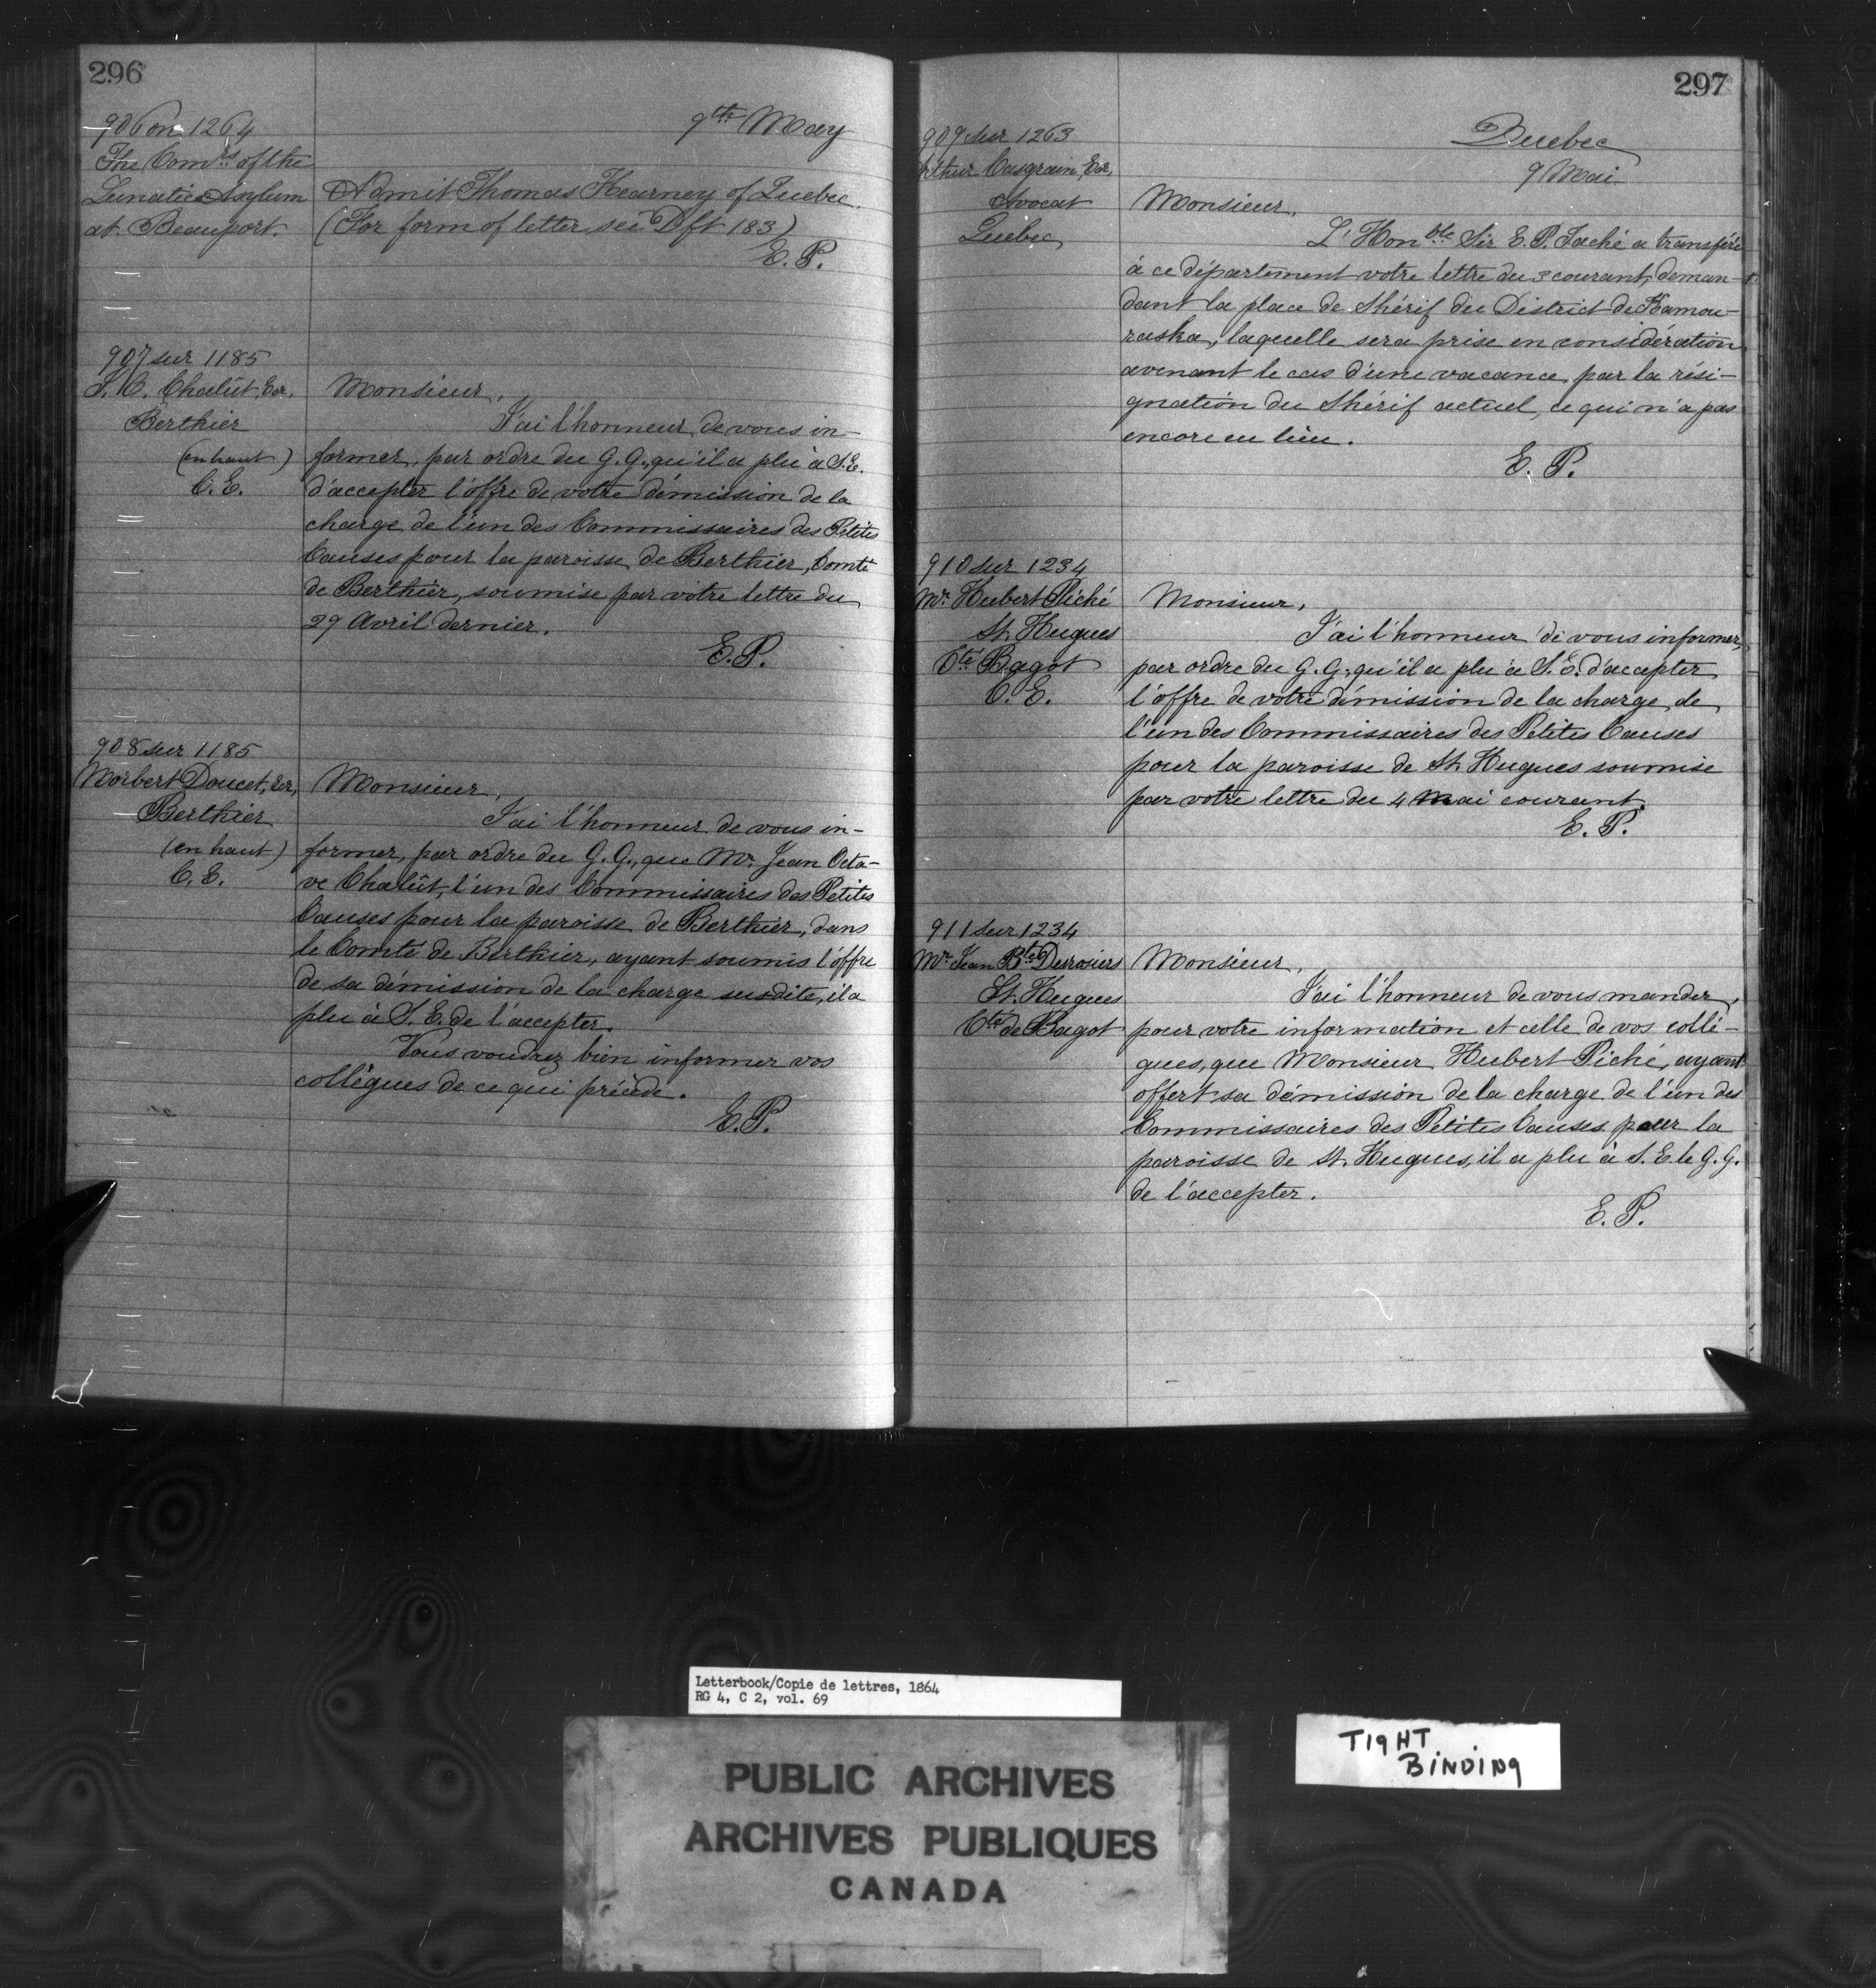 296
906 on 1264
9th May
The Comrs of the
Lunatic Asylum
at Beauport.
Admit Thomas Kearney of Quebec.
(For form of letter see Dft 183)
E. P.
907 sur 1185
J. O. Chalût, Ecr,
Berthier
(en haut)
C. E.
Monsieur,
J'ai l'honneur de vous in-
former, par ordre du G. G., qu'il a plu à S. E.
d'accepter l'offre de votre démission de la
charge de l'un des Commissaires des Petites
Causes pour la paroisse de Berthier, Comté
de Berthier, soumise par votre lettre du
29 Avril dernier.
E. P.
908 sur 1185
Norbert Doucet, Ecr,
Berthier
(en haut)
C. E.
Monsieur,
J'ai l'honneur de vous in-
former, par ordre du G. G., que Mr. Jean Octa-
ve Chalût, l'un des Commissaires des Petites
Causes pour la paroisse de Berthier, dans
le Comté de Berthier, ayant soumis l'offre
de sa démission de la charge susdite, il a
plu à S. E. de l'accepter.
Vous voudrez bien informer vos
collègues de ce qui précède.
E. P.
297
909 sur 1263
Arthur Casgrain, Ecr,
Avocat
Quebec
Quebec
9 Mai
Monsieur,
L'Honble Sir E. P. Taché a transféré
à ce département votre lettre du 3 courant, deman-
dant la place de Shérif du District de Kamou-
raska, laquelle sera prise en considération
avenant le cas d'une vacance par la rési-
gnation du Shérif actuel, ce qui n'a pas
encore eu lieu.
E. P.
910 sur 1234
Mr. Hubert Piché
St. Hugues
Cté Bagot
C. E.
Monsieur,
J'ai l'honneur de vous informer,
par ordre du G. G., qu'il a plu à S. E. d'accepter
l'offre de votre démission de la charge de
l'un des Commissaires des Petites Causes
pour la paroisse de St. Hugues soumise
par votre lettre du 4 Mai courant.
E. P.
911 sur 1234
Mr. Jean Bte Desrosiers
St. Hugues
Cté de Bagot
Monsieur,
J'ai l'honneur de vous mander,
pour votre information et celle de vos collè-
gues, que Monsieur Hubert Piché, ayant
offert sa démission de la charge de l'un des
Commissaires des Petites Causes pour la
paroisse de St. Hugues, il a plu à S. E. le G. G.
de l'accepter.
E. P.
Letterbook/Copie de lettres, 1864
RG 4, C 2, vol. 69
TIGHT
BINDING
PUBLIC ARCHIVES
ARCHIVES PUBLIQUES
CANADA